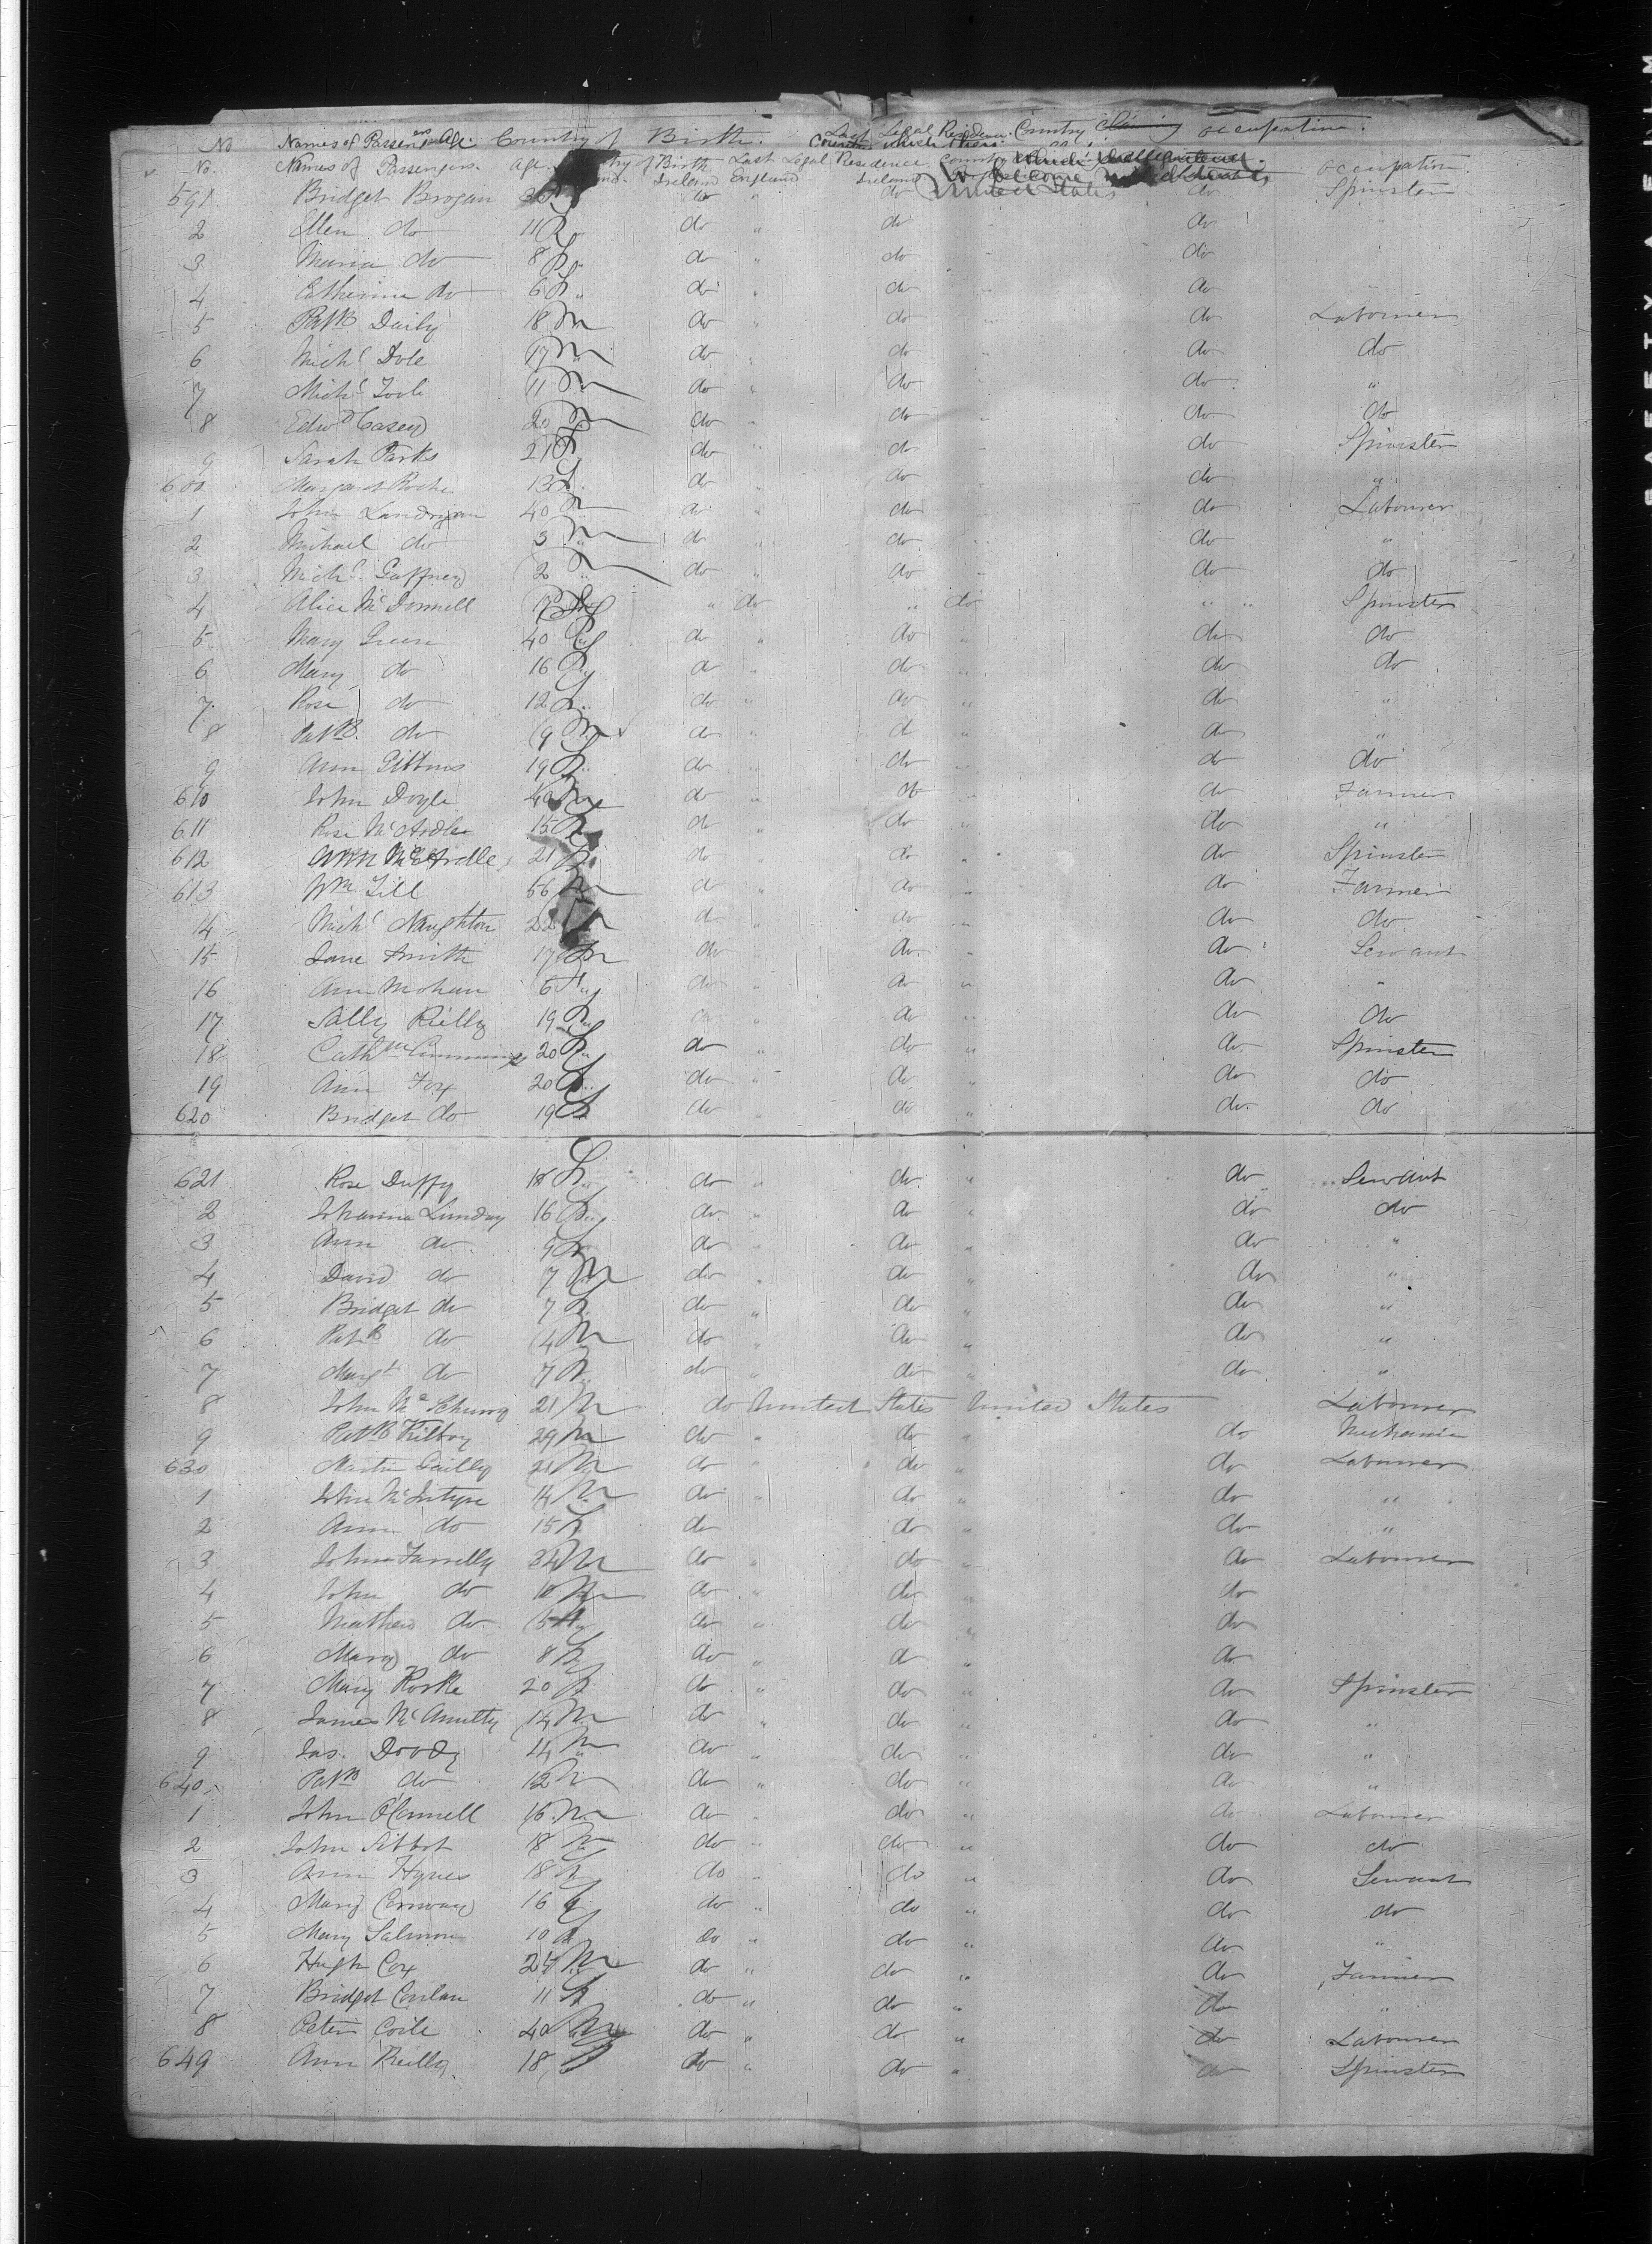 No Names of Passengers Age. Country of Birth. Last Legal Residence. Country occupation.
No. Names of Passengers. age. of Birth Last Legal Residence Country which occupation.
Ireland England Ireland United States
591 Bridget Brogan do " do do Spinster
2 Ellen do 11 F " do " do " do
3 Maria do 8 F " do " do " do
4 Catherine do 6 F " do " do " do
5 Patk Daily 18 m do " do " do Labourer
6 Michl Dole 17 m do " do " do do
7 Michl Toole 11 m do " do " do "
8 Edwd Casey 20 m do " do " do do
9 Sarah Parks 21 F do " do " do Spinster
600 Margaret Roche 13 F do " do " do "
1 John Landrigan 40 m do " do " do Labourer
2 Michael do 3 m do " do " do "
3 Michl Gaffney 2 m do " do " do do
4 Alice McDonnell " do " do " " Spinster
5 Mary Green 40 F do " do " do do
6 Mary do 16 F do " do " do do
7 Rose do 12 F do " do " do "
8 Patk do 9 m do " do " do "
9 Ann Gibbons 19 F do " do " do do
610 John Doyle 40 m do " do " do Farmer
611 Rose McArdle 15 F do " do " do "
612 Ann McArdle 21 F do " do " do Spinster
613 Wm Gill 56 m do " do " do Farmer
14 Michl Naughton 22 m do " do " do do
15 Jane Smith 17 do " do " do Servant
16 Ann Mohan 6 do " do " do "
17 Sally Rielly 19 F do " do " do do
18 Cathne Cummins 20 F do " do " do Spinster
19 Ann Fox 20 F do " do " do do
620 Bridget do 19 F do " do " do do
621 Rose Duffy 18 F do " do " do Servant
2 Johanna Lunday 16 F do " do " do do
3 Ann do 9 F do " do " do "
4 David do 7 m do " do " do "
5 Bridget do 7 F do " do " do "
6 Patk do 4 m do " do " do "
7 Margt do 7 F do " do " do "
8 John Mc 21 m do United States United States Labourer
9 Patk Kilboy 29 m do " do " do Mechanic
630 Martin 21 m do " do " do Labourer
1 John McIntyre 14 m do " do " do "
2 Ann do 15 F do " do " do "
3 John Farrelly 34 m do " do " do Labourer
4 John do 10 m do " do " do
5 Mathew do 5 do " do " do
6 Mary do 8 F do " do " do
7 Mary Rorke 20 F do " do " do Spinster
8 James McAnulty 14 m do " do " do "
9 Jas. Doody 14 m do " do " do "
640 Patk do 12 m do " do " do "
1 John O'Connell 16 m do " do " do Labourer
2 John Sibbot 18 m do " do " do do
3 Ann Hynes 18 F do " do " do Servant
4 Mary Conway 16 F do " do " do do
5 Mary Salmon 10 F do " do " do "
6 Hugh Cox 24 m do " do " do Farmer
7 Bridget Conlan 11 F do " do " do "
8 Peter Coile 40 m do " do " do Labourer
649 Ann Reilly 18 F do " do " do Spinster